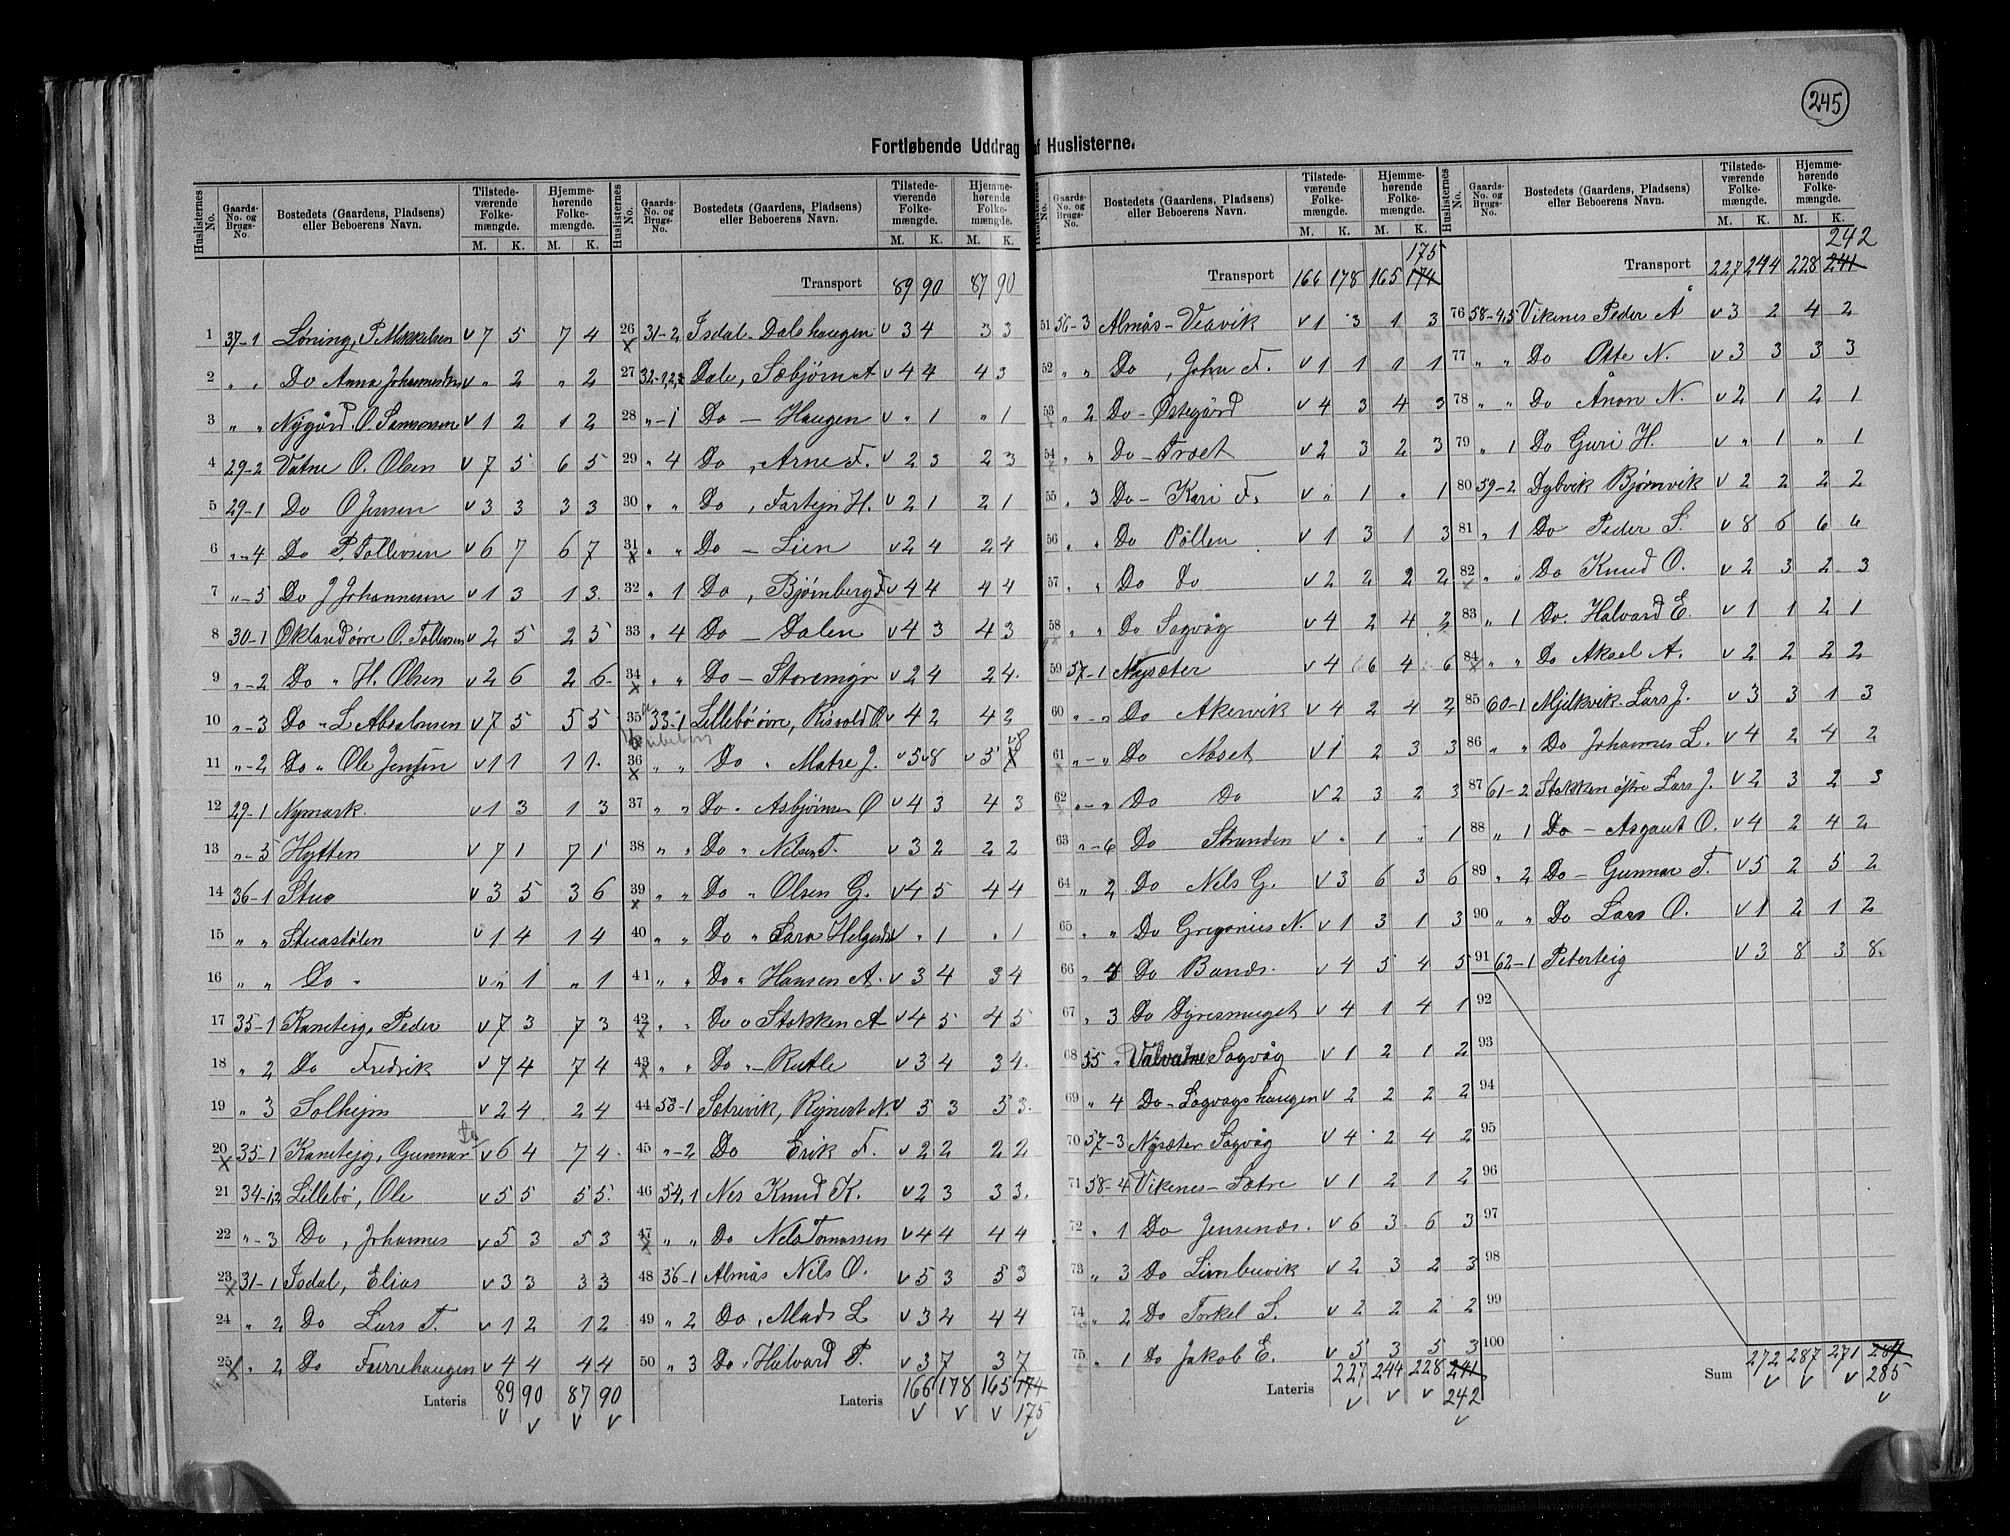 245
Fortløbende Uddrag af Huslisterne.
Huslisternes No. Gaards-No. og Brugs-No. Bostedets (Gaardens, Pladsens) eller Beboerens Navn. Tilstedeværende Folkemængde. M. K. Hjemmehørende Folkemængde. M. K.
1 37-1 Løning, P. Mikkelsen v 7 5 7 4
2 " " Do Anna v " 2 " 2
3 " " Nygård. O. Samsonsen v 1 2 1 2
4 29-2 Vatne O. Olsen v 7 5 6 5
5 29-1 Do O Jensen v 3 3 3 3
6 "-4 Do P. Tollevsen v 6 7 6 7
7 "-5 Do J Johannesen v 1 3 1 3
8 30-1 O. Tollevsen v 2 5 2 5
9 "-2 Do " H. Olsen v 2 6 2 6
10 "-3 Do " L Absalonsen v 7 5 5 5
11 "-2 Do " Ole Jensen v 1 1 1 1
12 29-1 Nymark v 1 3 1 3
13 "-5 Hytten v 7 1 7 1
14 36-1 Stuo v 3 5 3 6
15 " " Stuastølen v 1 4 1 4
16 " " Do " v " 1 " 1
17 35-1 Kanteig, Peder v 7 3 7 3
18 " 2 Do Fredrik v 7 4 7 4
19 " 3 Solhejm v 2 4 2 4
20 x 35-1 Kantejg, Gunnar v 6 4 7 4
21 34-1,2 Lillebø, Ole v 5 5 5 5
22 "-3 Do, Johannes v 5 3 5 3
23 x 31-1 Isdal, Elias v 3 3 3 3
24 " 2 Do Lars T. v 1 2 1 2
25 x " 2 Do Furrehaugen v 4 4 4 4
Lateris 89 90 87 90
v v v v
Huslisternes No. Gaards-No. og Brugs-No. Bostedets (Gaardens, Pladsens) eller Beboerens Navn. Tilstedeværende Folkemængde. M. K. Hjemmehørende Folkemængde. M. K.
Transport 89 90 87 90
26 x 31-2 Isdal-Dalshaugen v 3 4 3 3
27 32-1,2,3 Dale, Sæbjørn A v 4 4 4 3
28 "-1 Do - Haugen v " 1 " 1
29 " 4 Do, Arne F. v 2 3 2 3
30 " " Do, H. v 2 1 2 1
31 x " " Do - Lien v 2 4 2 4
32 " 1 Do, v 4 4 4 4
33 " 4 Do - Dalen v 4 3 4 3
34 x " " Do - Storemyr v 2 4 2 4
35 33-1 Lillebø øvre, Risvold O. v 4 2 4 2
36 x " " Do " Matre J. v 5 v8 v 5 v8
37 " " Do " Asbjørnsen O v 4 3 4 3
38 " " Do " Nilsen T. v 3 2 2 2
39 x " " Do " Olsen G. v 4 5 4 4
40 " " Do " Sara v " 1 " 1
41 " " Do " Hansen A. v 3 4 3 4
42 x " " Do " Stokken A v 4 5 4 5
43 x " " Do "- Rutle v 3 4 3 4
44 53-1 Sætrevik, Rejnert N. v 5 3 5 3
45 "-2 Do Erik F. v 2 2 2 2
46 54,1 Nes Knud K. v 2 3 3 3
47 x " " Do Nels Tomassen v 4 4 4 4
48 56-1 Almås Nils O. v 5 3 5 3
49 " 2 Do, Mads L v 3 4 4 4
50 " 3 Do, Halvard T. v 3 7 3 7
Lateris 166 178 165 174
v v v 175
v
Huslisternes No. Gaards-No. og Brugs-No. Bostedets (Gaardens, Pladsens) eller Beboerens Navn. Tilstedeværende Folkemængde. M. K. Hjemmehørende Folkemængde. M. K.
175
Transport 166 178 165 174
51 56-3 Almås-Veavik v 1 3 1 3
52 " " Do, John F. v 1 1 1 1
53 " 2 Do-Østegård v 4 3 4 3
54 x " " Do-Træet v 2 3 2 3
55 " 3 Do- Kari F. v " 1 " 1
56 " " Do Pøllen v 1 3 1 3
57 " " Do Do v 2 2 2 2
58 x " " Do Sagvåg v 4 2 4 2
59 57-1 Nysæter v 4 6 4 6
60 "-" Do Akervik v 4 2 4 2
61 x "-" Do Neset v 1 2 3 3
62 x "-" Do Do v 2 3 2 3
63 "-6 Do Stranden v " 1 " 1
64 " 2 Do Nels G. v 3 6 3 6
65 " " Do Gregorius N. v 1 3 1 3
66 " 4 Do v 4 5 4 5
67 " 3 Do v 4 1 4 1
68 55 " Valvatne Sagvåg v 1 2 1 2
69 " 4 Do-Sagvagshaugen v 2 2 2 2
70 57-3 Nysæter Sagvåg v 4 2 4 2
71 58-4 Vikenes-Sætre v 1 2 1 2
72 " 1 Do v 6 3 6 3
73 " 3 Do Limbuvik v 2 3 2 3
74 " 2 Do Torkel S. v 2 2 2 2
75 " 1 Do Jakob E. v 5 3 5 3
Lateris 227 244 228 241
v v v 242
v
Huslisternes No. Gaards-No. og Brugs-No. Bostedets (Gaardens, Pladsens) eller Beboerens Navn. Tilstedeværende Folkemængde. M. K. Hjemmehørende Folkemængde. M. K.
242
Transport 227 244 228 241
76 58-4,5 Vikenes Peder Å v 3 2 4 2
77 " " Do Otte N. v 3 3 3 3
78 " " Do Ånon N. v 2 1 2 1
79 " 1 Do Guri H. v " 1 " 1
80 59-2 Dybvik Bjørnvik v 2 2 2 2
81 " 1 Do Peder S. v 8 6 6 6
82 x " " Do Knud O. v 2 3 2 3
83 " 1 Do. Halvard E. v 1 1 2 1
84 x " " Do Aksel A. v 2 2 2 2
85 60-1 Mjelkvik-Lars J. v 3 3 1 3
86 " " Do Johannes L. v 4 2 4 2
87 61-2 Stokken østre Lars J. v 2 3 2 3
88 " 1 Do - Asgaut O. v 4 2 4 2
89 " 2 Do - Gunnar T. v 5 2 5 2
90 " " Do Lars O. v 1 2 1 2
91 62-1 Peterteig v 3 8 3 8
92
93
94
95
96
97
98
99
100
Sum 272 287 271 284
v v v 285
v